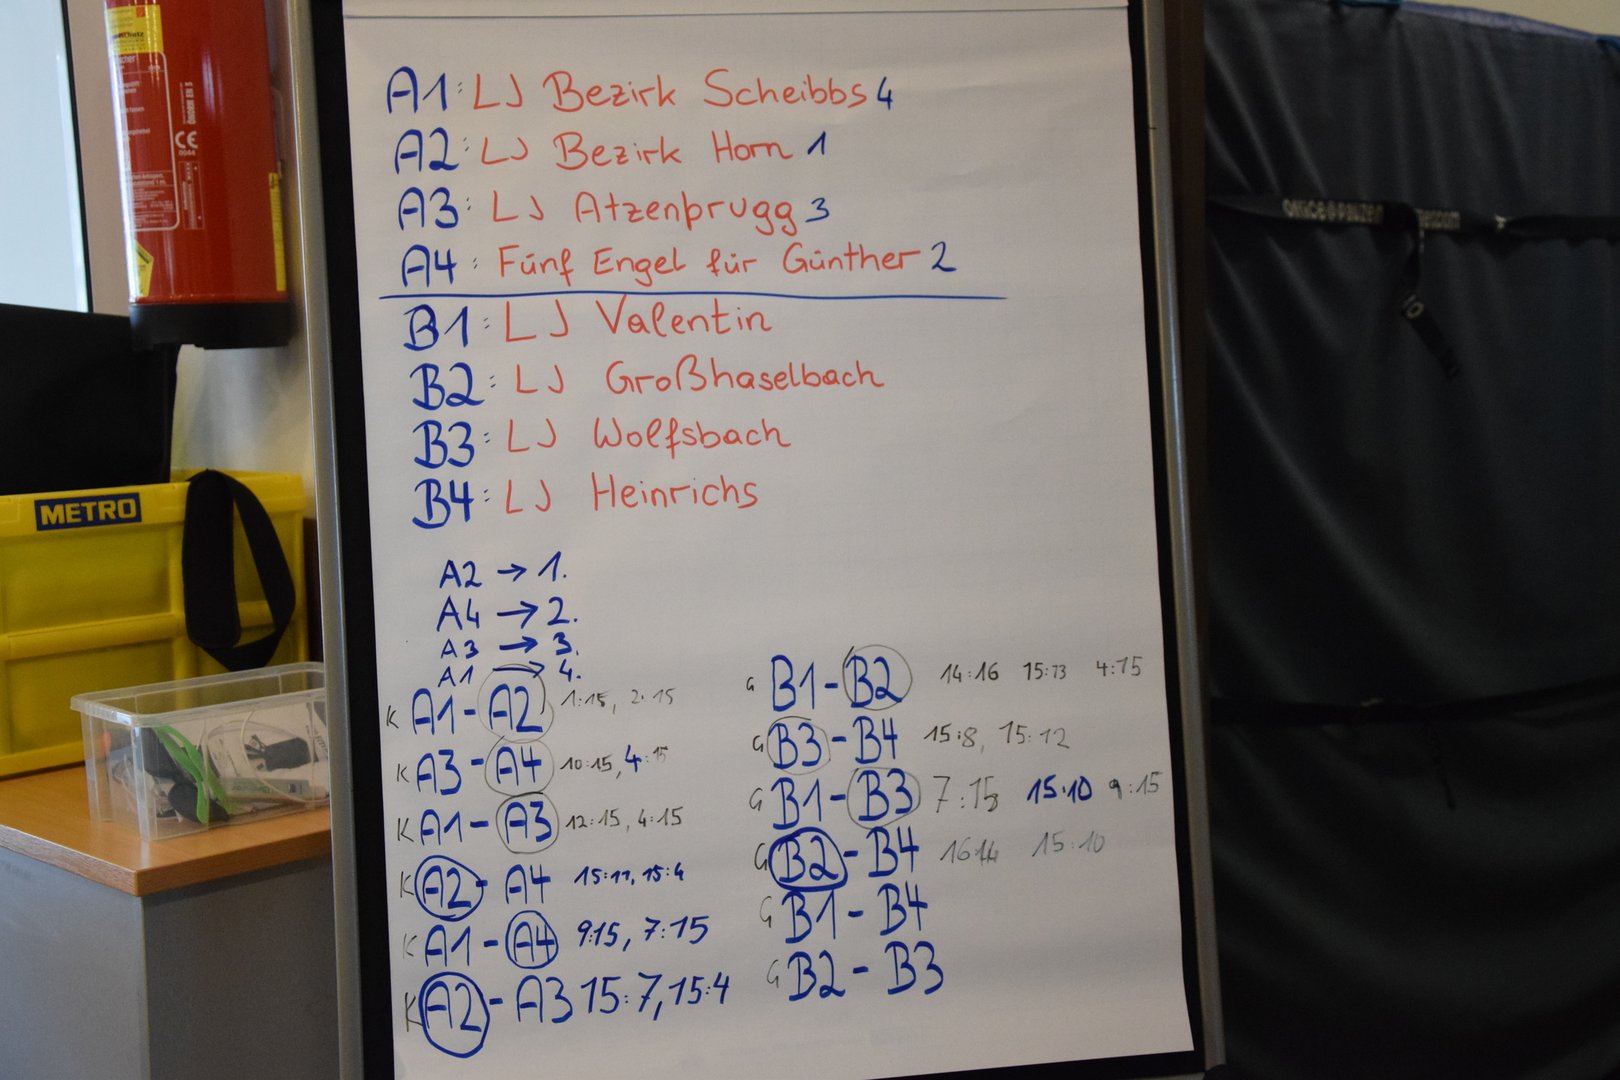 A1: LJ Bezirk Scheibbs 4
A2: LJ Bezirk Horn 1
A3: LJ Atzenbrugg 3
A4: Fünf Engel für Günther 2
B1: LJ Valentin
B2: LJ Großhaselbach
B3: LJ Wolfsbach
B4: LJ Heinrichs
A2 → 1.
A4 → 2.
A3 → 3.
A1 → 4.
K A1 - A2 1:15, 2:15
K A3 - A4 10:15, 4:15
K A1 - A3 12:15, 4:15
K A2 - A4 15:11, 15:4
K A1 - A4 9:15, 7:15
K A2 - A3 15:7, 15:4
G B1 - B2 14:16 15:13 4:15
G B3 - B4 15:8, 15:12
G B1 - B3 7:15 15:10 9:15
G B2 - B4 16:14 15:10
G B1 - B4
G B2 - B3
METRO
CE
0044